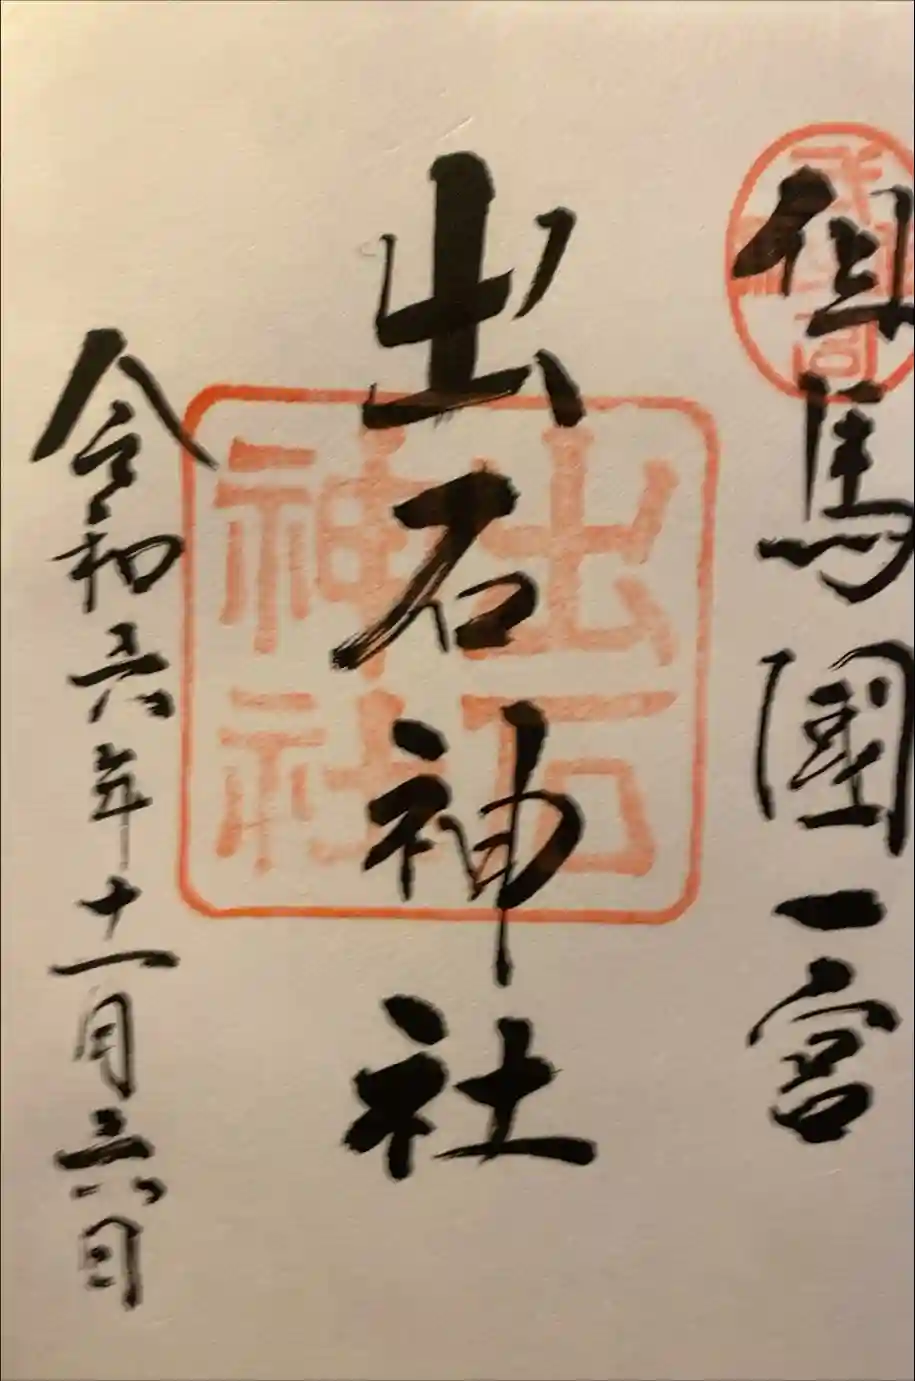 但馬國一宮
出石神社
出石
神社
令和六年十一月六日